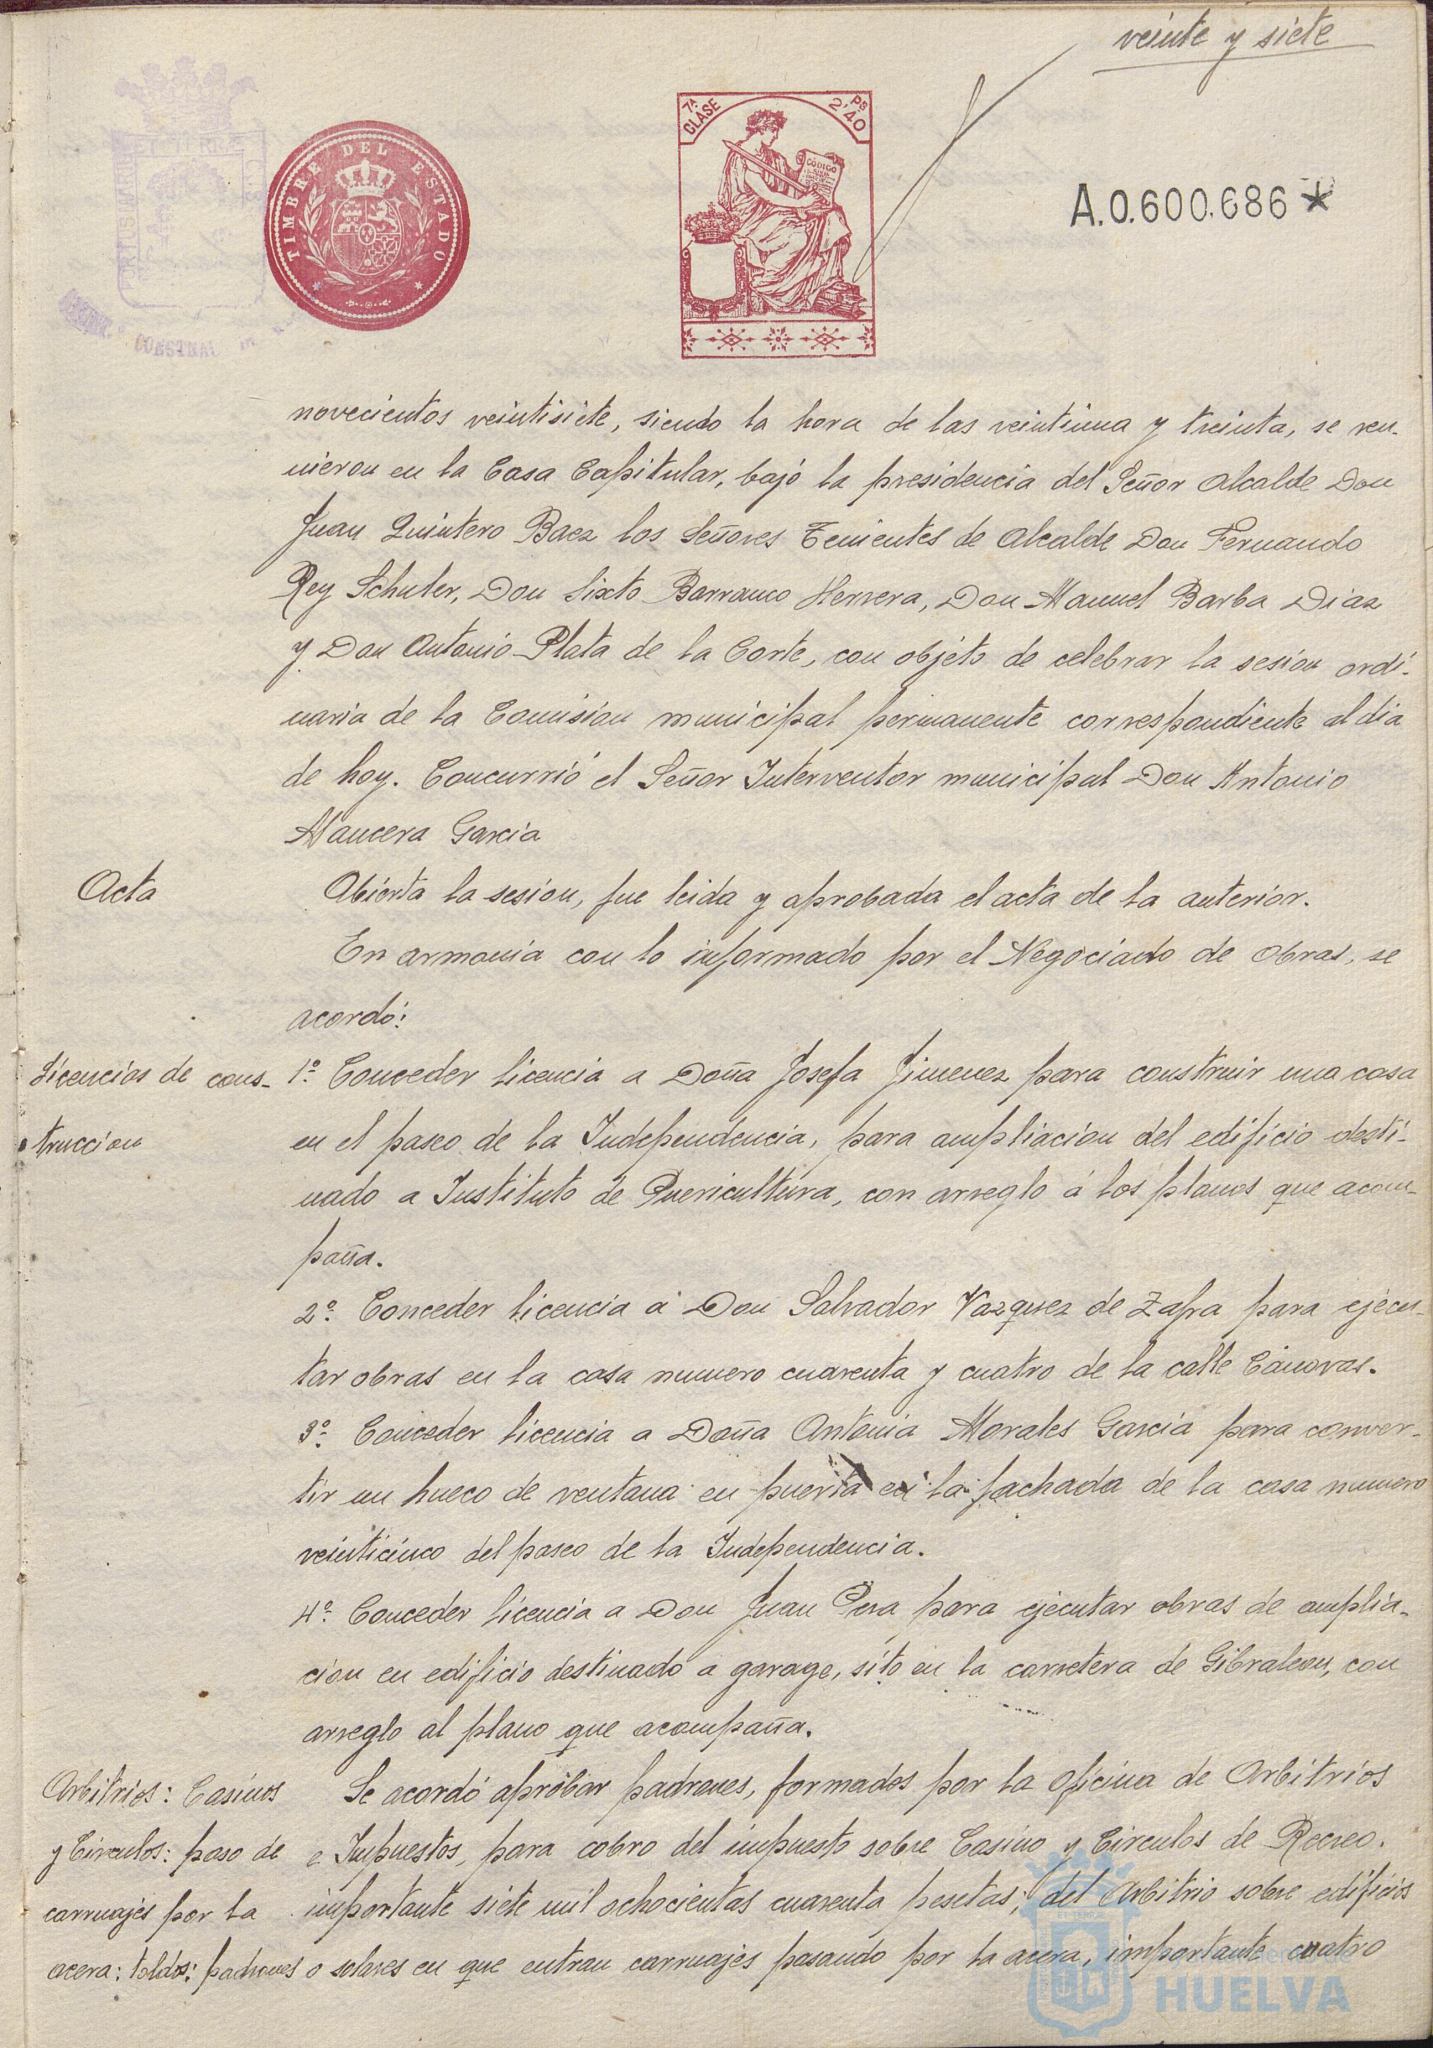 veinte y siete
7ª CLASE
Ps 2'40
CÓDIGO
TIMBRE DEL ESTADO
A.0.600.686*
novecientos veintisiete, siendo la hora de las veintiuna y treinta, se reu-
nieron en la Casa Capitular, bajo la presidencia del Señor Alcalde Don
Juan Quintero Baez los Señores Tenientes de Alcalde Don Fernando
Rey Schuler, Don Sixto Barranco Herrera, Don Manuel Barba Diaz
y Don Antonio Plata de la Corte, con objeto de celebrar la sesion ordi-
naria de la Comision municipal permanente correspondiente al dia
de hoy. Concurrió el Señor Interventor municipal Don Antonio
Mancera Garcia
Acta
Abierta la sesion, fue leida y aprobada el acta de la anterior.
En armonia con lo informado por el Negociado de Obras, se
acordó:
Licencias de cons-
truccion
1º Conceder licencia a Doña Josefa Jimenez para construir una casa
en el paseo de la Independencia, para ampliacion del edificio desti-
nado a Instituto de Puericultura, con arreglo á los planos que acom-
paña.
2º Conceder licencia á Don Salvador Vazquez de Zafra para ejecu-
tar obras en la casa numero cuarenta y cuatro de la calle Cánovas.
3º Conceder licencia a Doña Antonia Morales Garcia para conver-
tir un hueco de ventana en puerta en la fachada de la casa numero
veinticinco del paseo de la Independencia.
4º Conceder licencia a Don Juan para ejecutar obras de amplia-
cion en edificio destinado a garage, sito en la carretera de Gibraleon, con
arreglo al plano que acompaña.
Arbitrios: Casinos
y Circulos: paso de
carruajes por la
acera: toldos: padrones
Se acordó aprobar padrones, formados por la Oficina de Arbitrios
e Impuestos, para cobro del impuesto sobre Casino y Circulos de Recreo.
importante siete mil ochocientas cuarenta pesetas; del Arbitrio sobre edificios
o solares en que entran carruajes pasando por la acera, importante cuatro
HUELVA